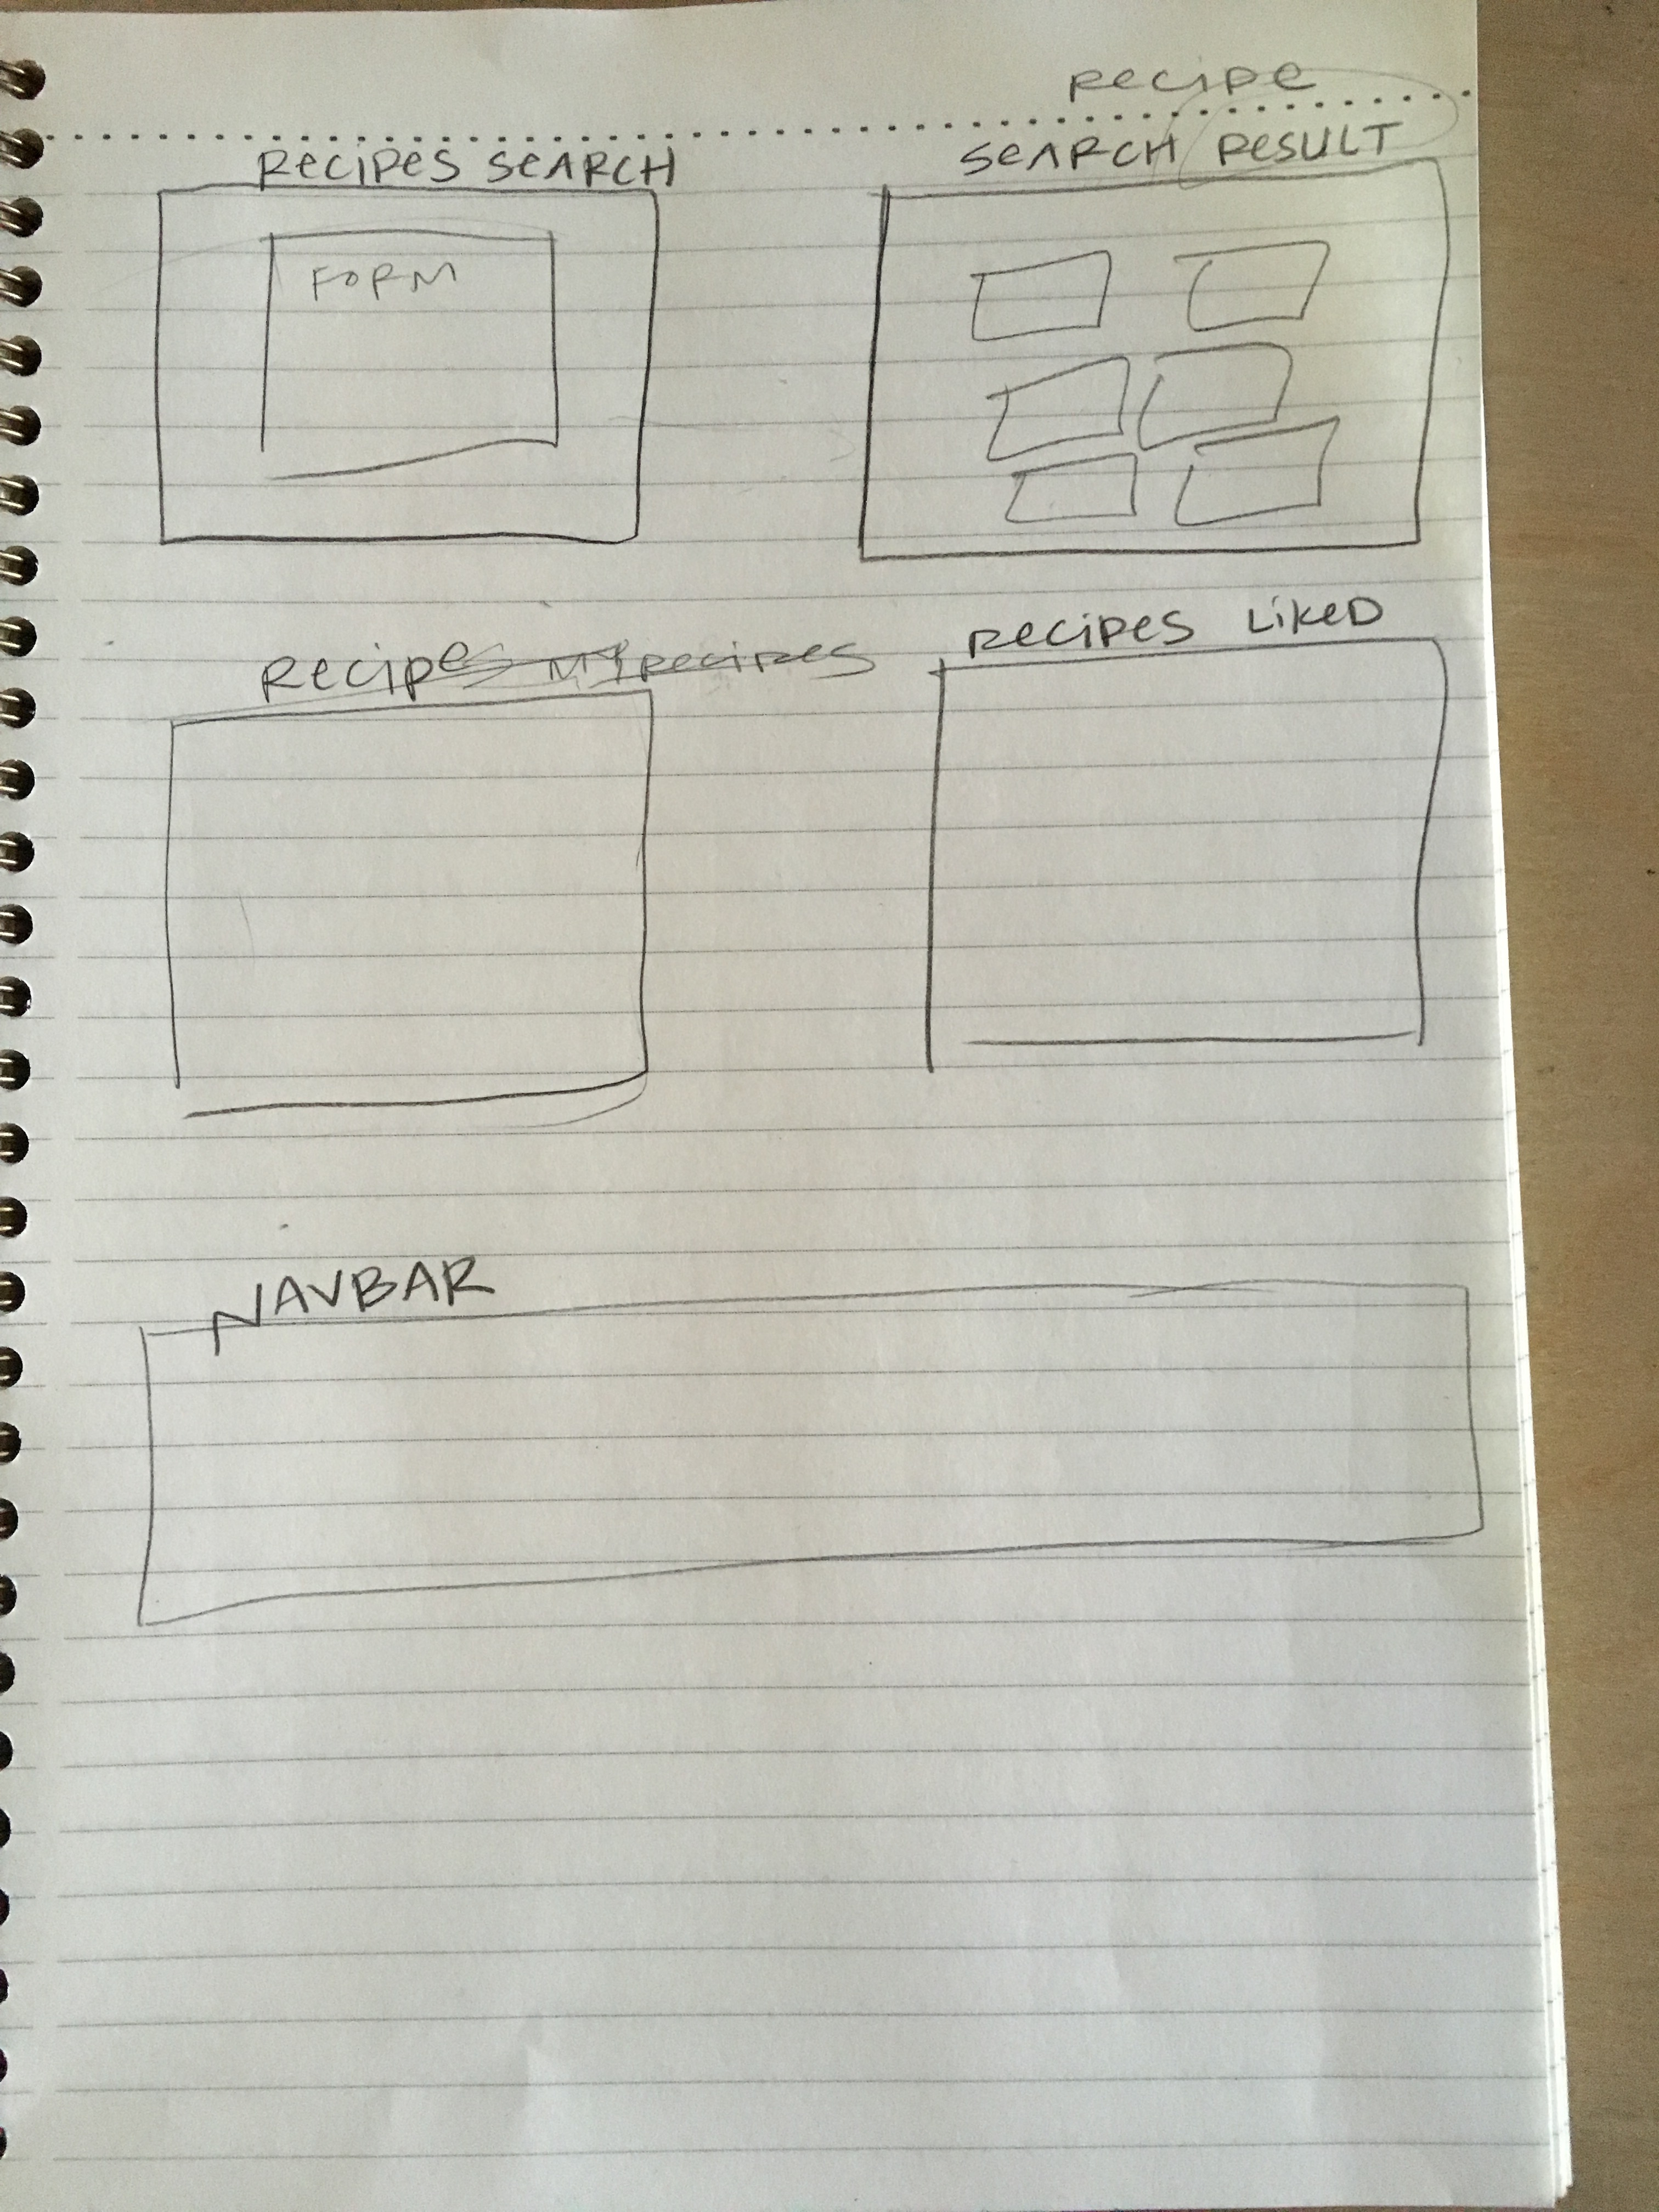 RECIPES SEARCH
FORM
RECIPE
SEARCH RESULT
RECIPES MY RECIPES
RECIPES LIKED
NAVBAR